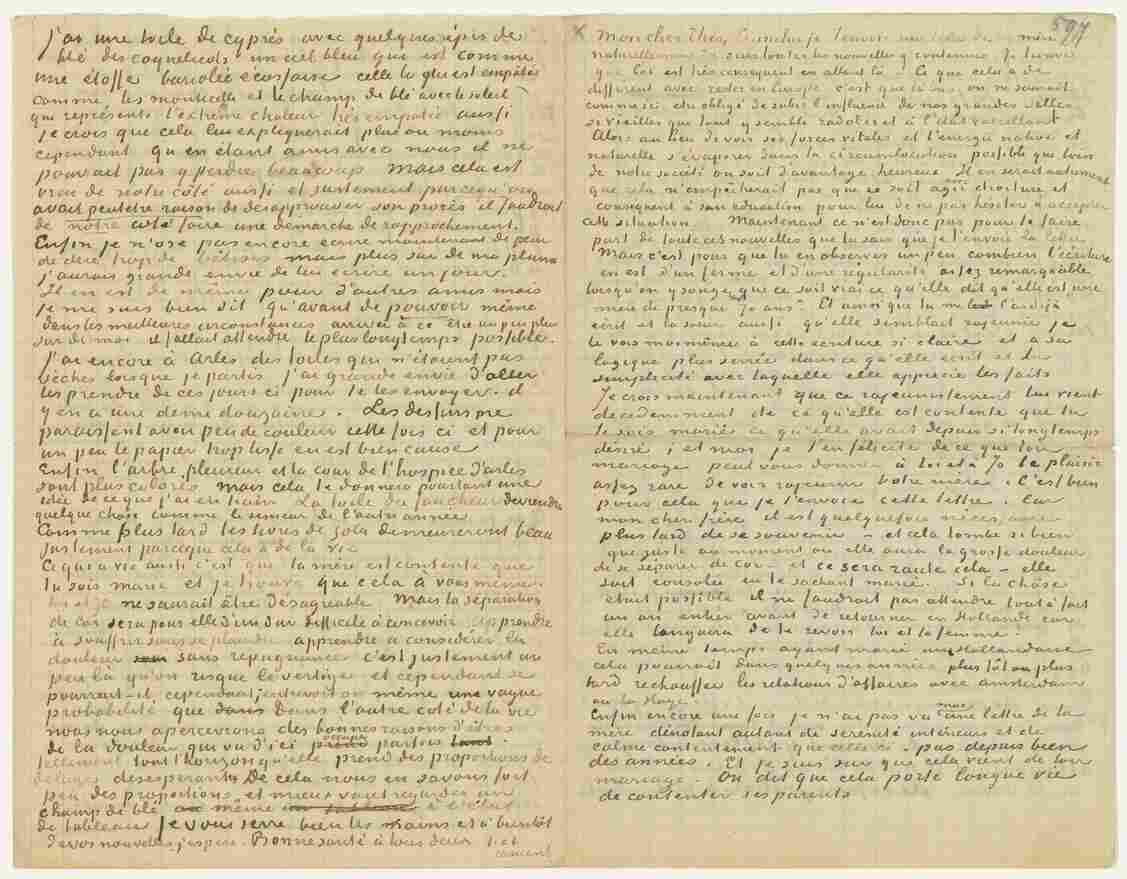 J'ai une toile de cyprès avec quelques épis de
blé des coquelicots un ciel bleu qui est comme
une étoffe bariolée ecossaise celle la qui est empatée
comme les monticelli et le champ de blé avec le soleil
qui représente l'extrême chaleur très empatée aussi
je crois que cela lui expliquerait plus ou moins
cependant qu'en étant amis avec nous il ne
pourrait pas y perdre beaucoup Mais cela est
vrai de notre côté aussi et justement parceque on
avait peutetre raison de desapprouver son procès il faudrait
de notre coté faire une demarche de rapprochement.
Enfin je n'ose pas encore ecrire maintenant de peur
de dire trop de betises mais plus sur de ma plume
j'aurais grande envie de lui ecrire un jour.
Il en est de même pour d'autres amis mais
je me suis bien dit qu'avant de pouvoir même
dans les meilleures circonstances arriver à ce être un peu plus
sur de moi il fallait attendre le plus longtemps possible.
J'ai encore à Arles des toiles qui n'étaient pas
sèches lorsque je partis j'ai grande envie d'aller
les prendre de ces jours ci pour te les envoyer. il
y en a une demi douzaine. Les dessins me
paraissent avoir peu de couleur cette fois ci et pour
un peu le papier trop lisse en est bien cause
Enfin l'arbre pleureur et la cour de l'hospice d'arles
sont plus colorés mais cela te donnera pourtant une
idée de ce que j'ai en train La toile du faucheur deviendra
quelque chose comme le semeur de l'autre année.
Comme plus tard les livres de zola demeureront beau
justement parceque cela a de la vie
Ce qui a vie aussi c'est que la mère est contente que
tu sois marié et je trouve que cela à vous mêmes
toi et Jo ne saurait être désagreable Mais la séparation
de cor sera pour elle d'un dur difficile à concevoir apprendre
à souffrir sans se plaindre apprendre à considerer la
douleur sans repugnance c'est justement un
peu la qu'on risque le vertige et cependant se
pourrait-il cependant, entrevoit on même une vague
probabilité que dans l'autre coté de la vie
nous nous apercevrons des bonnes raisons d'être
de la douleur qui vu d'ici occupe parfois
tellement tout l'horizon qu'elle prend des proportions de
déluges désesperants De cela nous en savons fort
peu des proportions, et mieux vaut regarder un
champ de blé même à l'etat
de tableau Je vous serre bien les mains et à bientôt
de vos nouvelles j'espère. Bonne santé à tous deux t. à t.
Vincent
597
Mon cher Theo, Ci inclus je t'envoie une lettre de mère
naturellement tu sais toutes les nouvelles y contenues. Je trouve
que Cor est très conséquent en allant là. Ce que cela a de
different avec rester en Europe c'est que là bas on ne saurait
comme ici etre obligé de subir l'influence de nos grandes villes
si vieilles que tout y semble radoter et à l'état vacillant
Alors au lieu de voir ses forces vitales et l'énergie native et
naturelle s'évaporer dans la circumlocution possible que loin
de notre société on soit d'avantage heureux. Il en serait autrement
que cela n'empêcherait pas que ce soit agir droiture et
conséquent à son education pour lui de ne pas hésiter à accepter
cette situation. Maintenant ce n'est donc pas pour te faire
part de toute ces nouvelles que tu sais que je t'envoie la lettre
Mais c'est pour que tu en observes un peu combien l'écriture
en est d'un ferme et d'une régularité assez remarquable
lorsqu'on y songe, que ce soit vrai ce qu'elle dit qu'elle est une
mère de presque 70 ans". Et ainsi que tu me l'as déjà
ecrit et la soeur aussi qu'elle semblait rajeunie je
le vois moi-même à cette ecriture si claire et à sa
logique plus serrée dans ce qu'elle ecrit et la
simplicité avec laquelle elle apprécie les faits
Je crois maintenant que ce rajeunissement lui vient
decedemment de ce qu'elle est contente que tu
te sois marié ce qu'elle avait depuis si longtemps
désiré; et moi je t'en félicite de ce que ton
mariage peut vous donner à toi et à Jo le plaisir
assez rare de voir rajeunir votre mère. C'est bien
pour cela que je t'envoie cette lettre. Car
mon cher frère il est quelquefois nécessaire
plus tard de se souvenir – et cela tombe si bien
que juste au moment ou elle aura la grosse douleur
de se séparer de Cor – et ce sera raide cela – elle
soit consolée en te sachant marié. Si la chôse
etait possible il ne faudrait pas attendre tout à fait
un an entier avant de retourner en Hollande car
elle languira de te revoir toi et ta femme.
En même temps ayant marié une Hollandaise
cela pourrait dans quelques années plus tôt ou plus
tard rechauffer les relations d'affaires avec amsterdam
ou la Haye.
Enfin encore une fois je n'ai pas vu une lettre de la
mère dénotant autant de sérénité intérieure et de
calme contentement que celle ci. pas depuis bien
des années. Et je suis sur que cela vient de ton
mariage. On dit que cela porte longue vie
de contenter ses parents